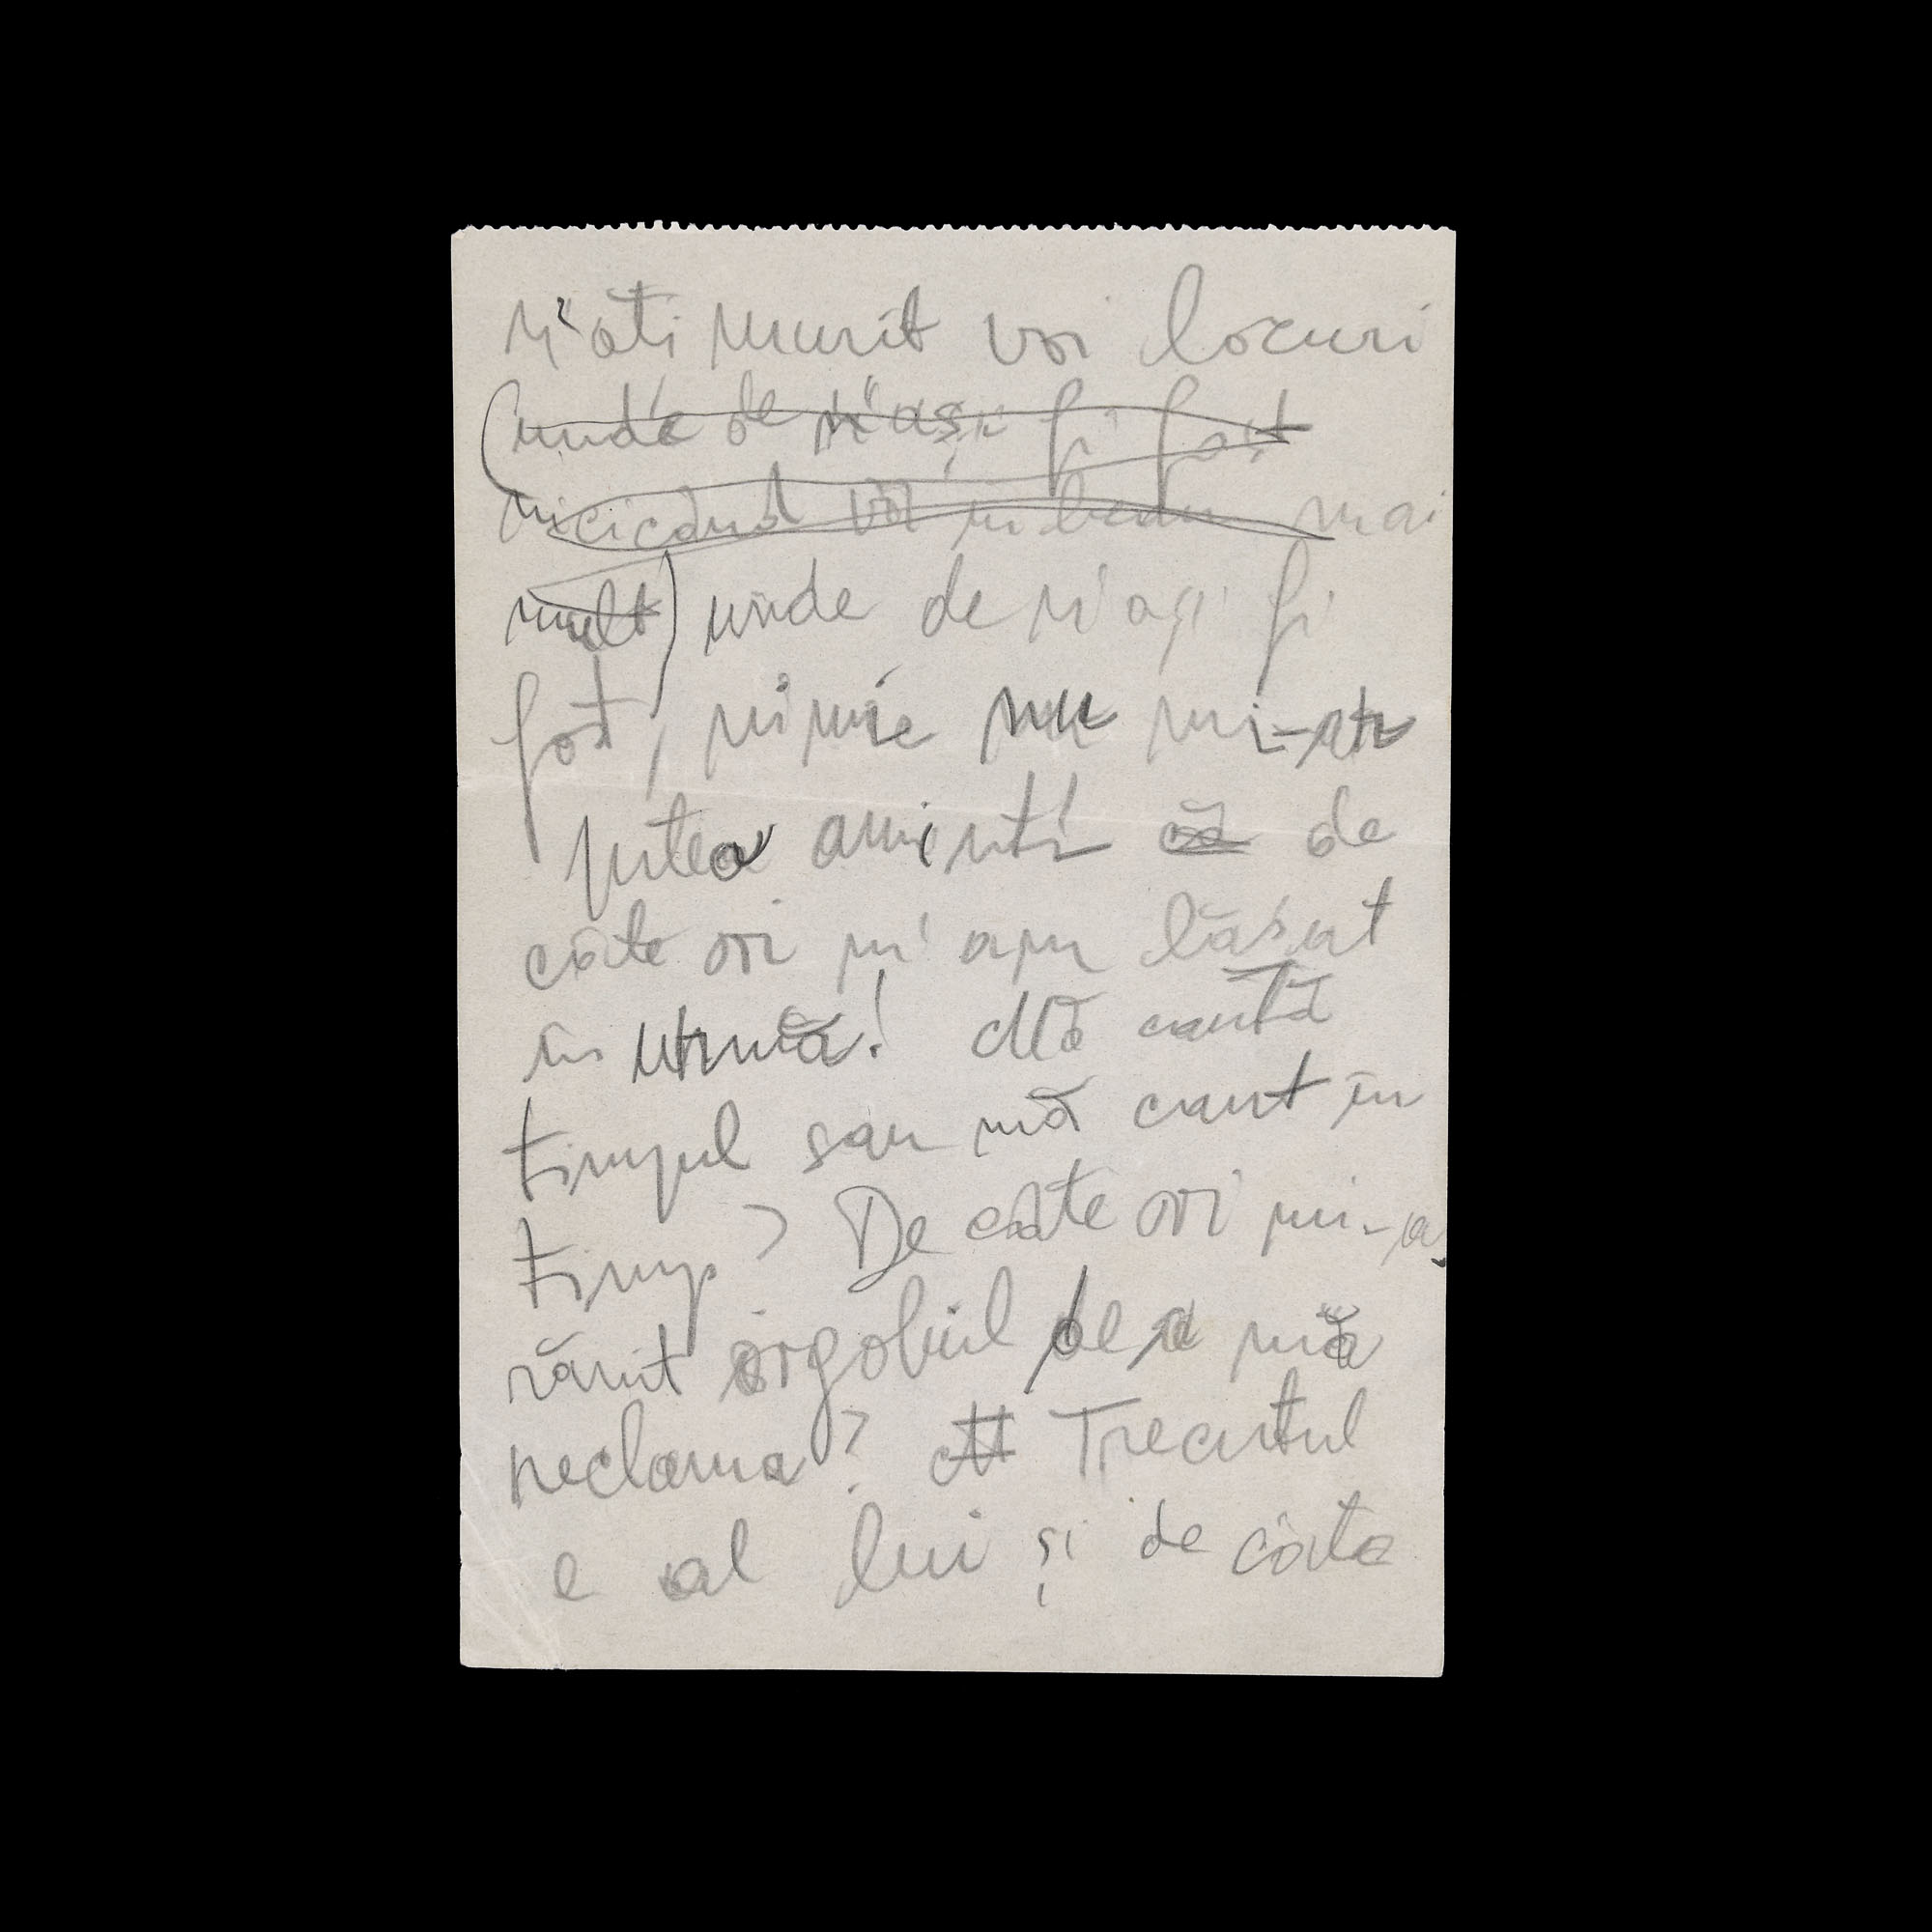 N'ați murit voi locuri
(unde de n'ași fi fost
nicicând vă iubeam mai
mult) unde de n'ași fi
fost, nimic nu mi-ar
putea aminti că de
câte ori m'am lăsat
în urmă! Mă caută
timpul sau mă caut în
timp? De câte ori mi-a
rănit orgoliul de a mă
reclama? Trecutul
e al lui și de câte